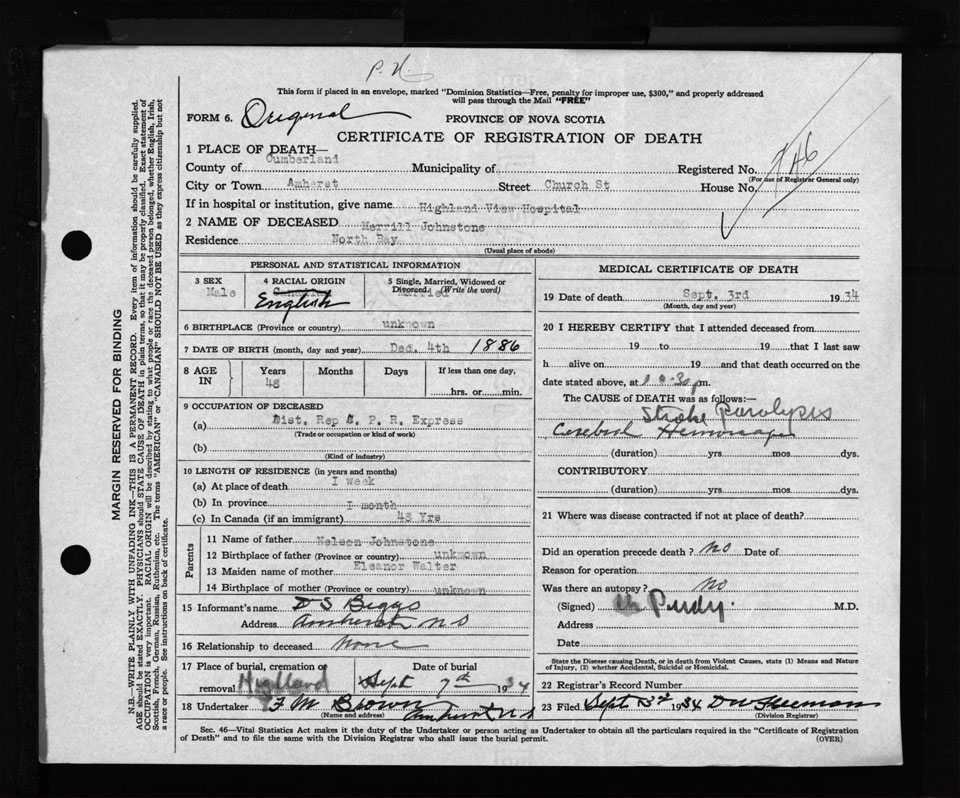 P. H.
This form if placed in an envelope, marked "Dominion Statistics—Free, penalty for improper use, $300," and properly addressed
will pass through the Mail "FREE"
FORM 6. Original PROVINCE OF NOVA SCOTIA
CERTIFICATE OF REGISTRATION OF DEATH
1 PLACE OF DEATH—
County of Cumberland Municipality of Registered No. 746
(For use of Registrar General only)
City or Town Amherst Street Church St House No.
If in hospital or institution, give name Highland View Hospital
2 NAME OF DECEASED Merrill Johnstone
Residence North Bay
(Usual place of abode)
PERSONAL AND STATISTICAL INFORMATION
3 SEX 4 RACIAL ORIGIN 5 Single, Married, Widowed or
Divorced. (Write the word)
Male Married
English
6 BIRTHPLACE (Province or country) unknown
7 DATE OF BIRTH (month, day and year) Dec. 4th 1886
8 AGE IN Years Months Days If less than one day,
48 hrs. or min.
9 OCCUPATION OF DECEASED
(a) Dist. Rep C. P. R. Express
(Trade or occupation or kind of work)
(b)
(Kind of industry)
10 LENGTH OF RESIDENCE (in years and months)
(a) At place of death I week
(b) In province I month
(c) In Canada (if an immigrant) 48 Yrs
Parents
11 Name of father Nelson Johnstone
12 Birthplace of father (Province or country) unknown
13 Maiden name of mother Eleanor Walter
14 Birthplace of mother (Province or country) unknown
15 Informant's name D S Biggs
Address Amherst N S
16 Relationship to deceased None
17 Place of burial, cremation or Date of burial
removal Highland Sept 7th 1934
18 Undertaker F M Brown Amherst N S
(Name and address)
MEDICAL CERTIFICATE OF DEATH
19 Date of death Sept. 3rd 1934
(Month, day and year)
20 I HEREBY CERTIFY that I attended deceased from
19 to 19 that I last saw
h alive on 19 and that death occurred on the
date stated above, at 10:30 pm.
The CAUSE of DEATH was as follows:—
Stroke Paralysis
Cerebral Hemorrage
(duration) yrs. mos. dys.
CONTRIBUTORY
(duration) yrs. mos. dys.
21 Where was disease contracted if not at place of death?
Did an operation precede death? No Date of
Reason for operation
Was there an autopsy? No
(Signed) Purdy. M.D.
Address
Date
State the Disease causing Death, or in death from Violent Causes, state (1) Means and Nature
of Injury, (2) whether Accidental, Suicidal or Homicidal.
22 Registrar's Record Number
23 Filed Sept 3rd 1934 D W Freeman
(Division Registrar)
Sec. 46—Vital Statistics Act makes it the duty of the Undertaker or person acting as Undertaker to obtain all the particulars required in the "Certificate of Registration
of Death" and to file the same with the Division Registrar who shall issue the burial permit. (OVER)
MARGIN RESERVED FOR BINDING
N.B.—WRITE PLAINLY WITH UNFADING INK—THIS IS A PERMANENT RECORD. Every item of information should be carefully supplied.
AGE should be stated EXACTLY. PHYSICIANS should STATE CAUSE OF DEATH in plain terms, so that it may be properly classified. Exact statement of
OCCUPATION is very important. RACIAL ORIGIN will be described by stating to what people or race the deceased person belonged, whether English, Irish,
Scottish, French, German, Russian, Ruthenian, etc. The terms "AMERICAN" or "CANADIAN" SHOULD NOT BE USED as they express citizenship but not
a race or people. See instructions on back of certificate.